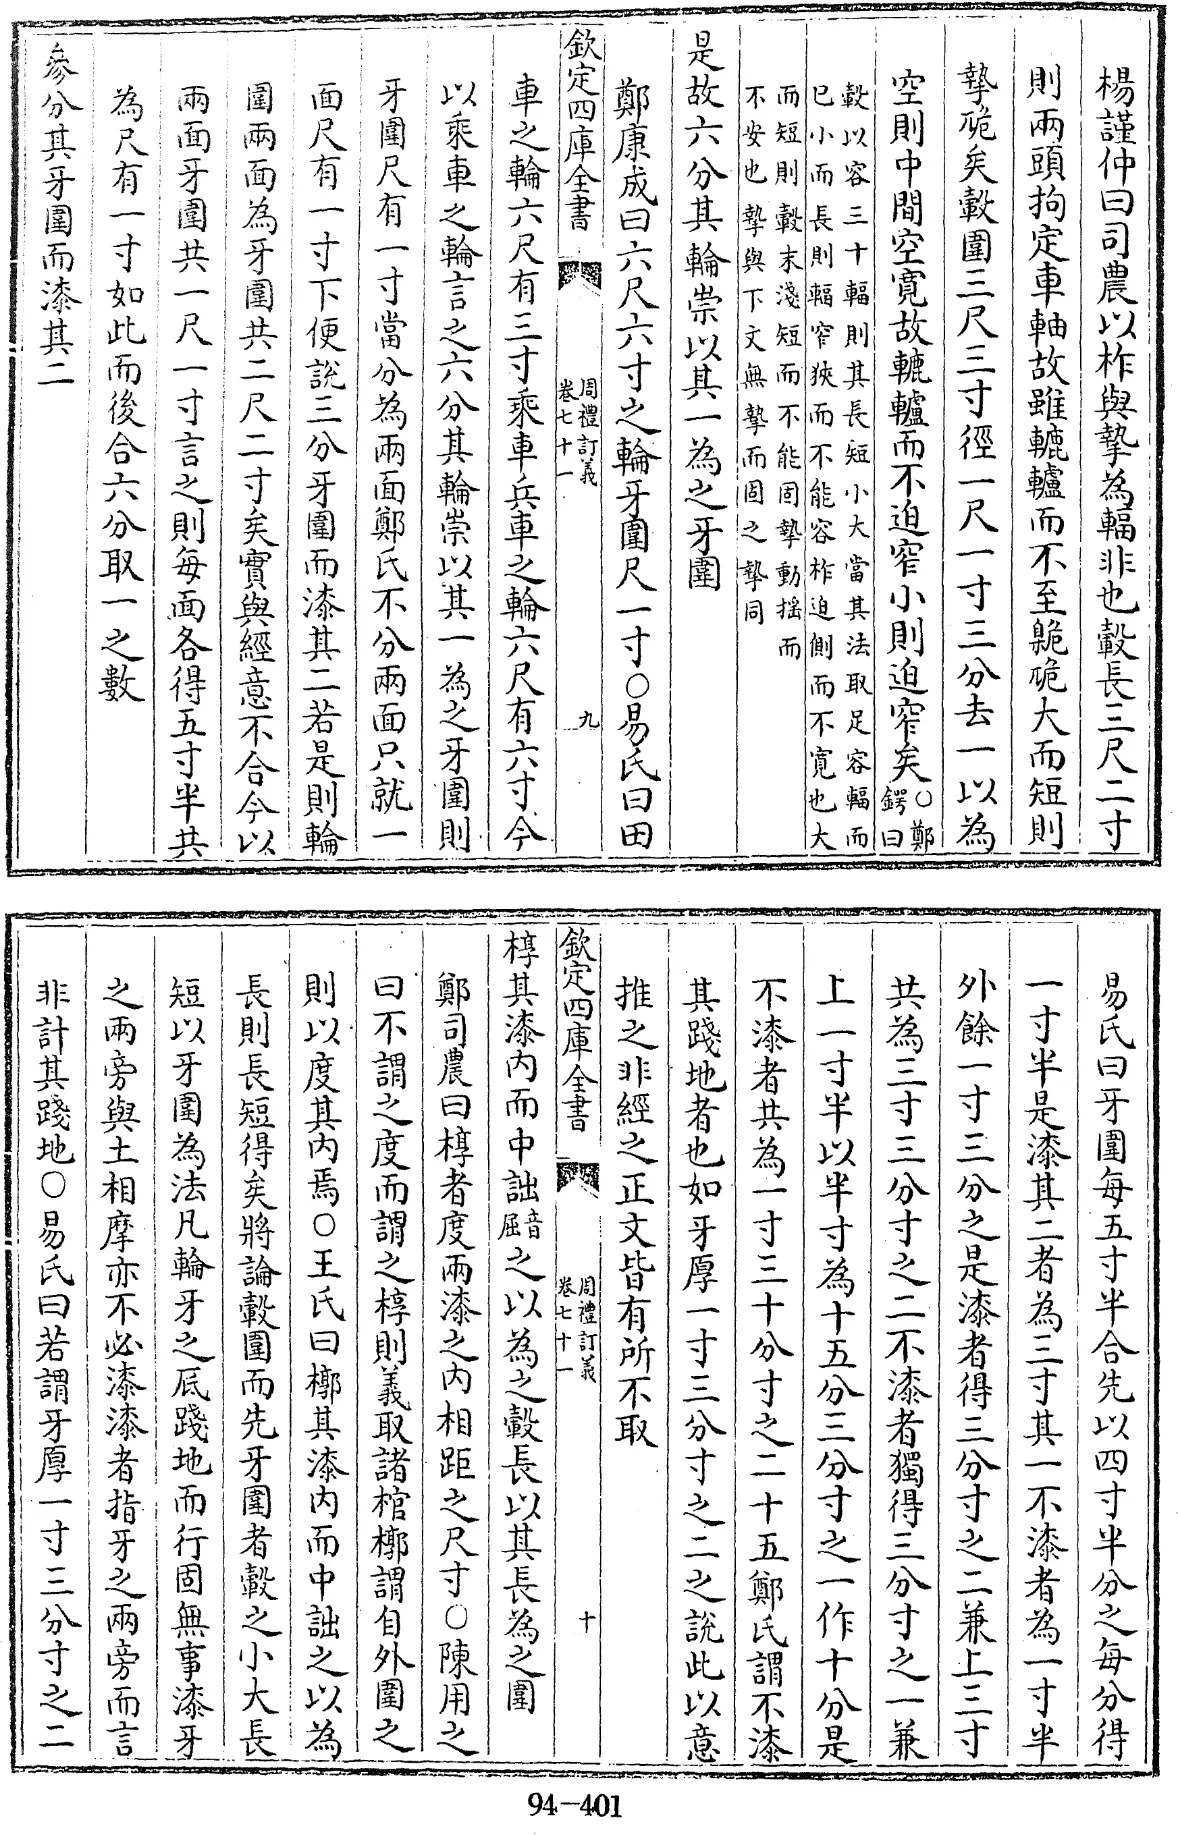 楊謹仲曰司農以柞與摯為輻非也轂長三尺二寸
則兩頭拘定車軸故雖轆轤而不至臲卼大而短則
摯卼矣轂圍三尺三寸徑一尺一寸三分去一以為
空則中間空寛故轆轤而不迫窄小則迫窄矣○鄭鍔曰
轂以容三十輻則其長短小大當其法取足容輻而
已小而長則輻窄狹而不能容柞迫側而不寛也大
而短則轂末淺短而不能固摯動揺而
不安也摯與下文無摯而固之摯同
是故六分其輪崇以其一為之牙圍
鄭康成曰六尺六寸之輪牙圍尺一寸○易氏曰田
欽定四庫全書
周禮訂義
卷七十一
九
車之輪六尺有三寸乘車兵車之輪六尺有六寸今
以乘車之輪言之六分其輪崇以其一為之牙圍則
牙圍尺有一寸當分為兩面鄭氏不分兩面只就一
面尺有一寸下便說三分牙圍而漆其二若是則輪
圍兩面為牙圍共二尺二寸矣實與經意不合今以
兩面牙圍共一尺一寸言之則每面各得五寸半共
為尺有一寸如此而後合六分取一之數
參分其牙圍而漆其二
易氏曰牙圍每五寸半合先以四寸半分之每分得
一寸半是漆其二者為三寸其一不漆者為一寸半
外餘一寸三分之是漆者得三分寸之二兼上三寸
共為三寸三分寸之二不漆者獨得三分寸之一兼
上一寸半以半寸為十五分三分寸之一作十分是
不漆者共為一寸三十分寸之二十五鄭氏謂不漆
其踐地者也如牙厚一寸三分寸之二之說此以意
推之非經之正文皆有所不取
欽定四庫全書
周禮訂義
卷七十一
十
椁其漆内而中詘音屈之以為之轂長以其長為之圍
鄭司農曰椁者度兩漆之内相距之尺寸○陳用之
曰不謂之度而謂之椁則義取諸棺槨謂自外圍之
則以度其内焉○王氏曰槨其漆内而中詘之以為
長則長短得矣將論轂圍而先牙圍者轂之小大長
短以牙圍為法凡輪牙之厎踐地而行固無事漆牙
之兩旁與土相摩亦不必漆漆者指牙之兩旁而言
非計其踐地○易氏曰若謂牙厚一寸三分寸之二
94-401